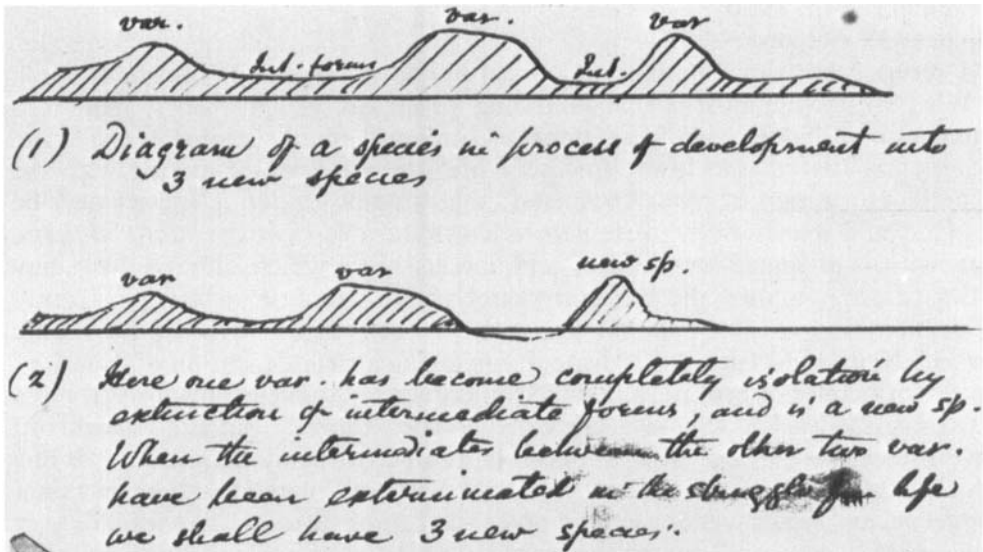 var. var. var
Int. forms Int.
(1) Diagram of a species in process of development into
3 new species
var var new sp.
(2) Here one var. has become completely isolation by
extinction of intermediate forms, and is a new sp.
When the intermediates between the other two var.
have been exterminated in the struggle for life
we shall have 3 new species.